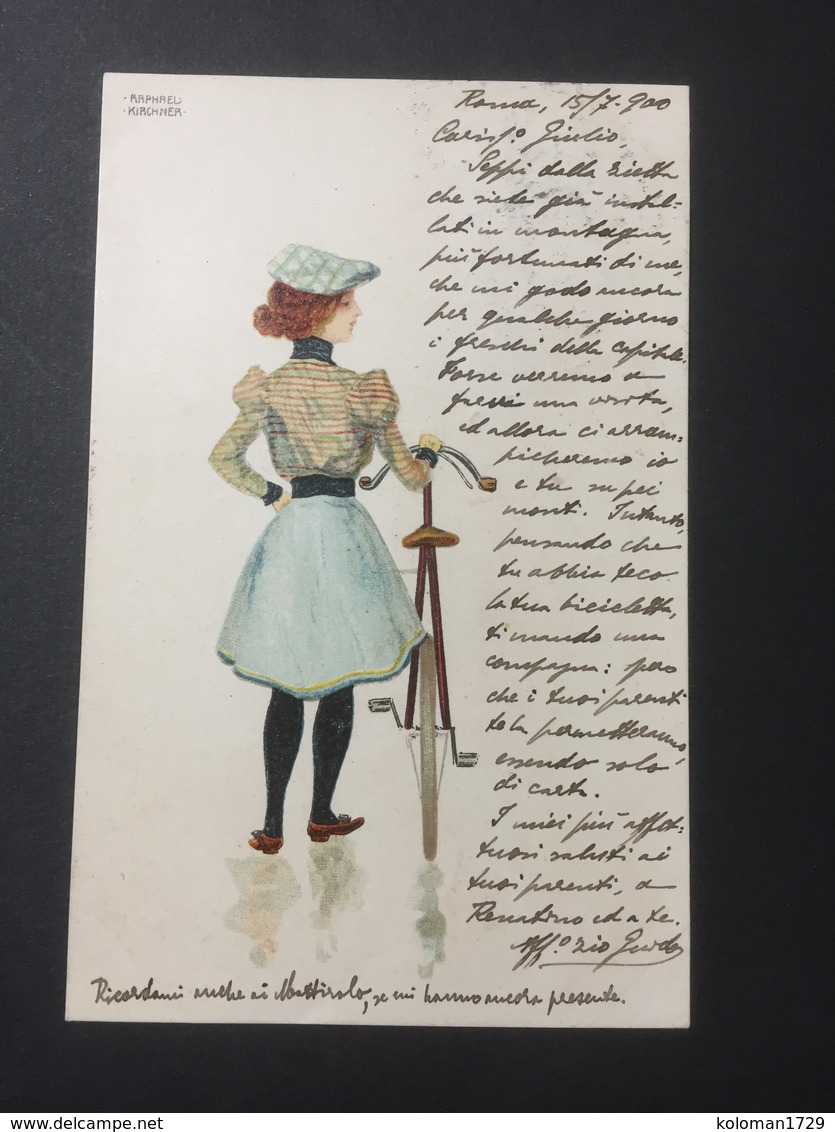 RAPHAEL
KIRCHNER
Roma, 15/7-900
Cariss.º Giulio,
Seppi dalla zietta
che siete già instal-
lati in montagna,
più fortunati di me,
che mi godo ancora
per qualche giorno
i freschi della capitale.
Forse verremo a
farvi una visita,
ed allora ci arram-
picheremo io
e tu su pei
monti. Intanto,
pensando che
tu abbia teco
la tua bicicletta,
ti mando una
compagna: spero
che i tuoi parenti
te la permetteranno,
essendo solo
di carta.
I miei più affet-
tuosi saluti ai
tuoi parenti, a
Renatino ed a te.
Aff.º zio Guido
Ricordami anche ai Mattirolo, se mi hanno ancora presente.
delcampe.net
koloman1729